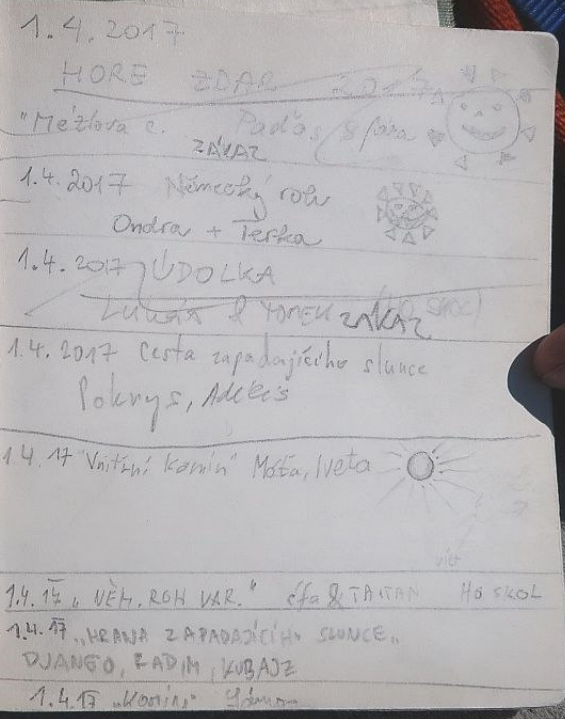 1.4.2017
HORE ZDAR 2017
"Mézlova c. Paďos &
ZÁKAZ
1.4.2017 Německý roh
Ondra + Terka
1.4.2017 ÚDOLKA
LUKÁŠ & TOMEK ZÁKAZ
1.4.2017 Cesta zapadajícího slunce
Pokrys,
1.4.17 "Vnitřní komín" Móťa, Iveta
1.4.17 „NĚM. ROH VAR." & TAITAN
1.4.17 „HRANA ZAPADAJÍCÍHO SLUNCE„
DJANGO, RADIM, KUBAJZ
1.4.17 „Komín„